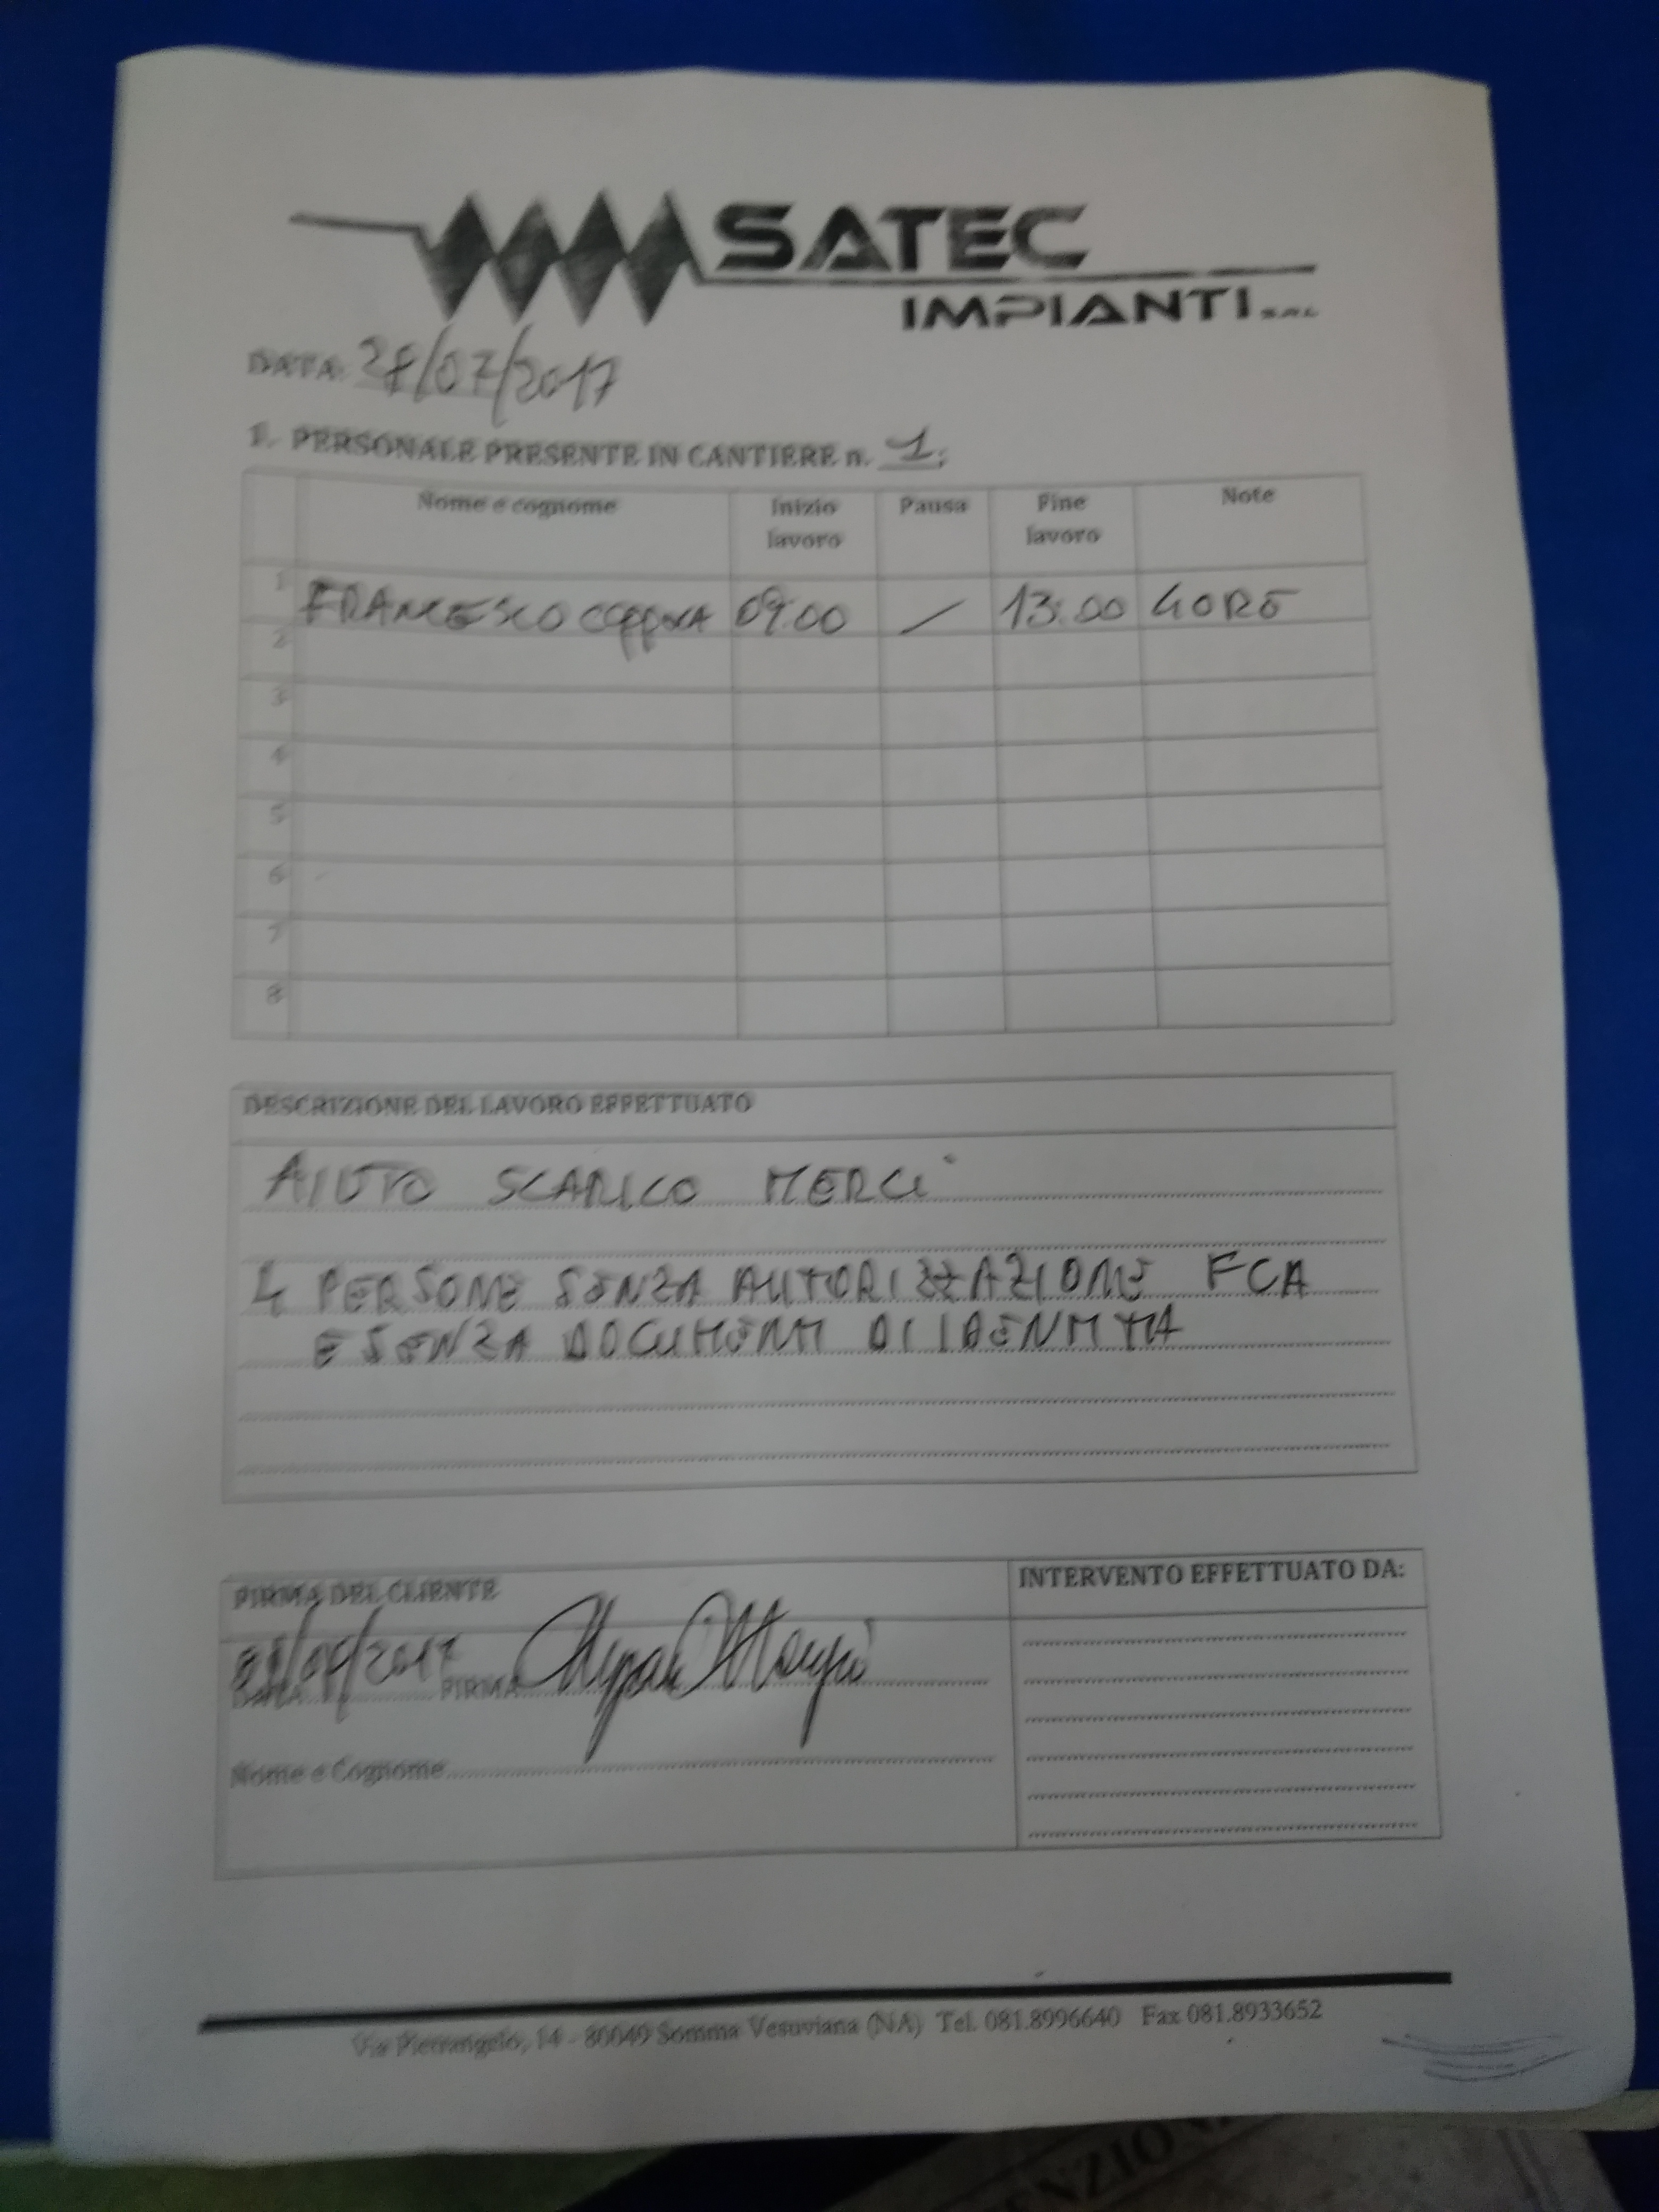 SATEC
IMPIANTI SRL
DATA: 28/07/2017
1. PERSONALE PRESENTE IN CANTIERE n. 1;
Nome e cognome Inizio lavoro Pausa Fine lavoro Note
1 FRANCESCO COPPOLA 09:00 / 13:00 4 ORE
2
3
4
5
6
7
8
DESCRIZIONE DEL LAVORO EFFETTUATO
AIUTO SCARICO MERCI
4 PERSONE SENZA AUTORIZZAZIONE FCA
E SENZA DOCUMENTI DI IDENTITA
FIRMA DEL CLIENTE
INTERVENTO EFFETTUATO DA:
FIRMA
Nome e Cognome
Via Pietrangelo, 14 - 80049 Somma Vesuviana (NA) Tel. 081.8996640 Fax 081.8933652